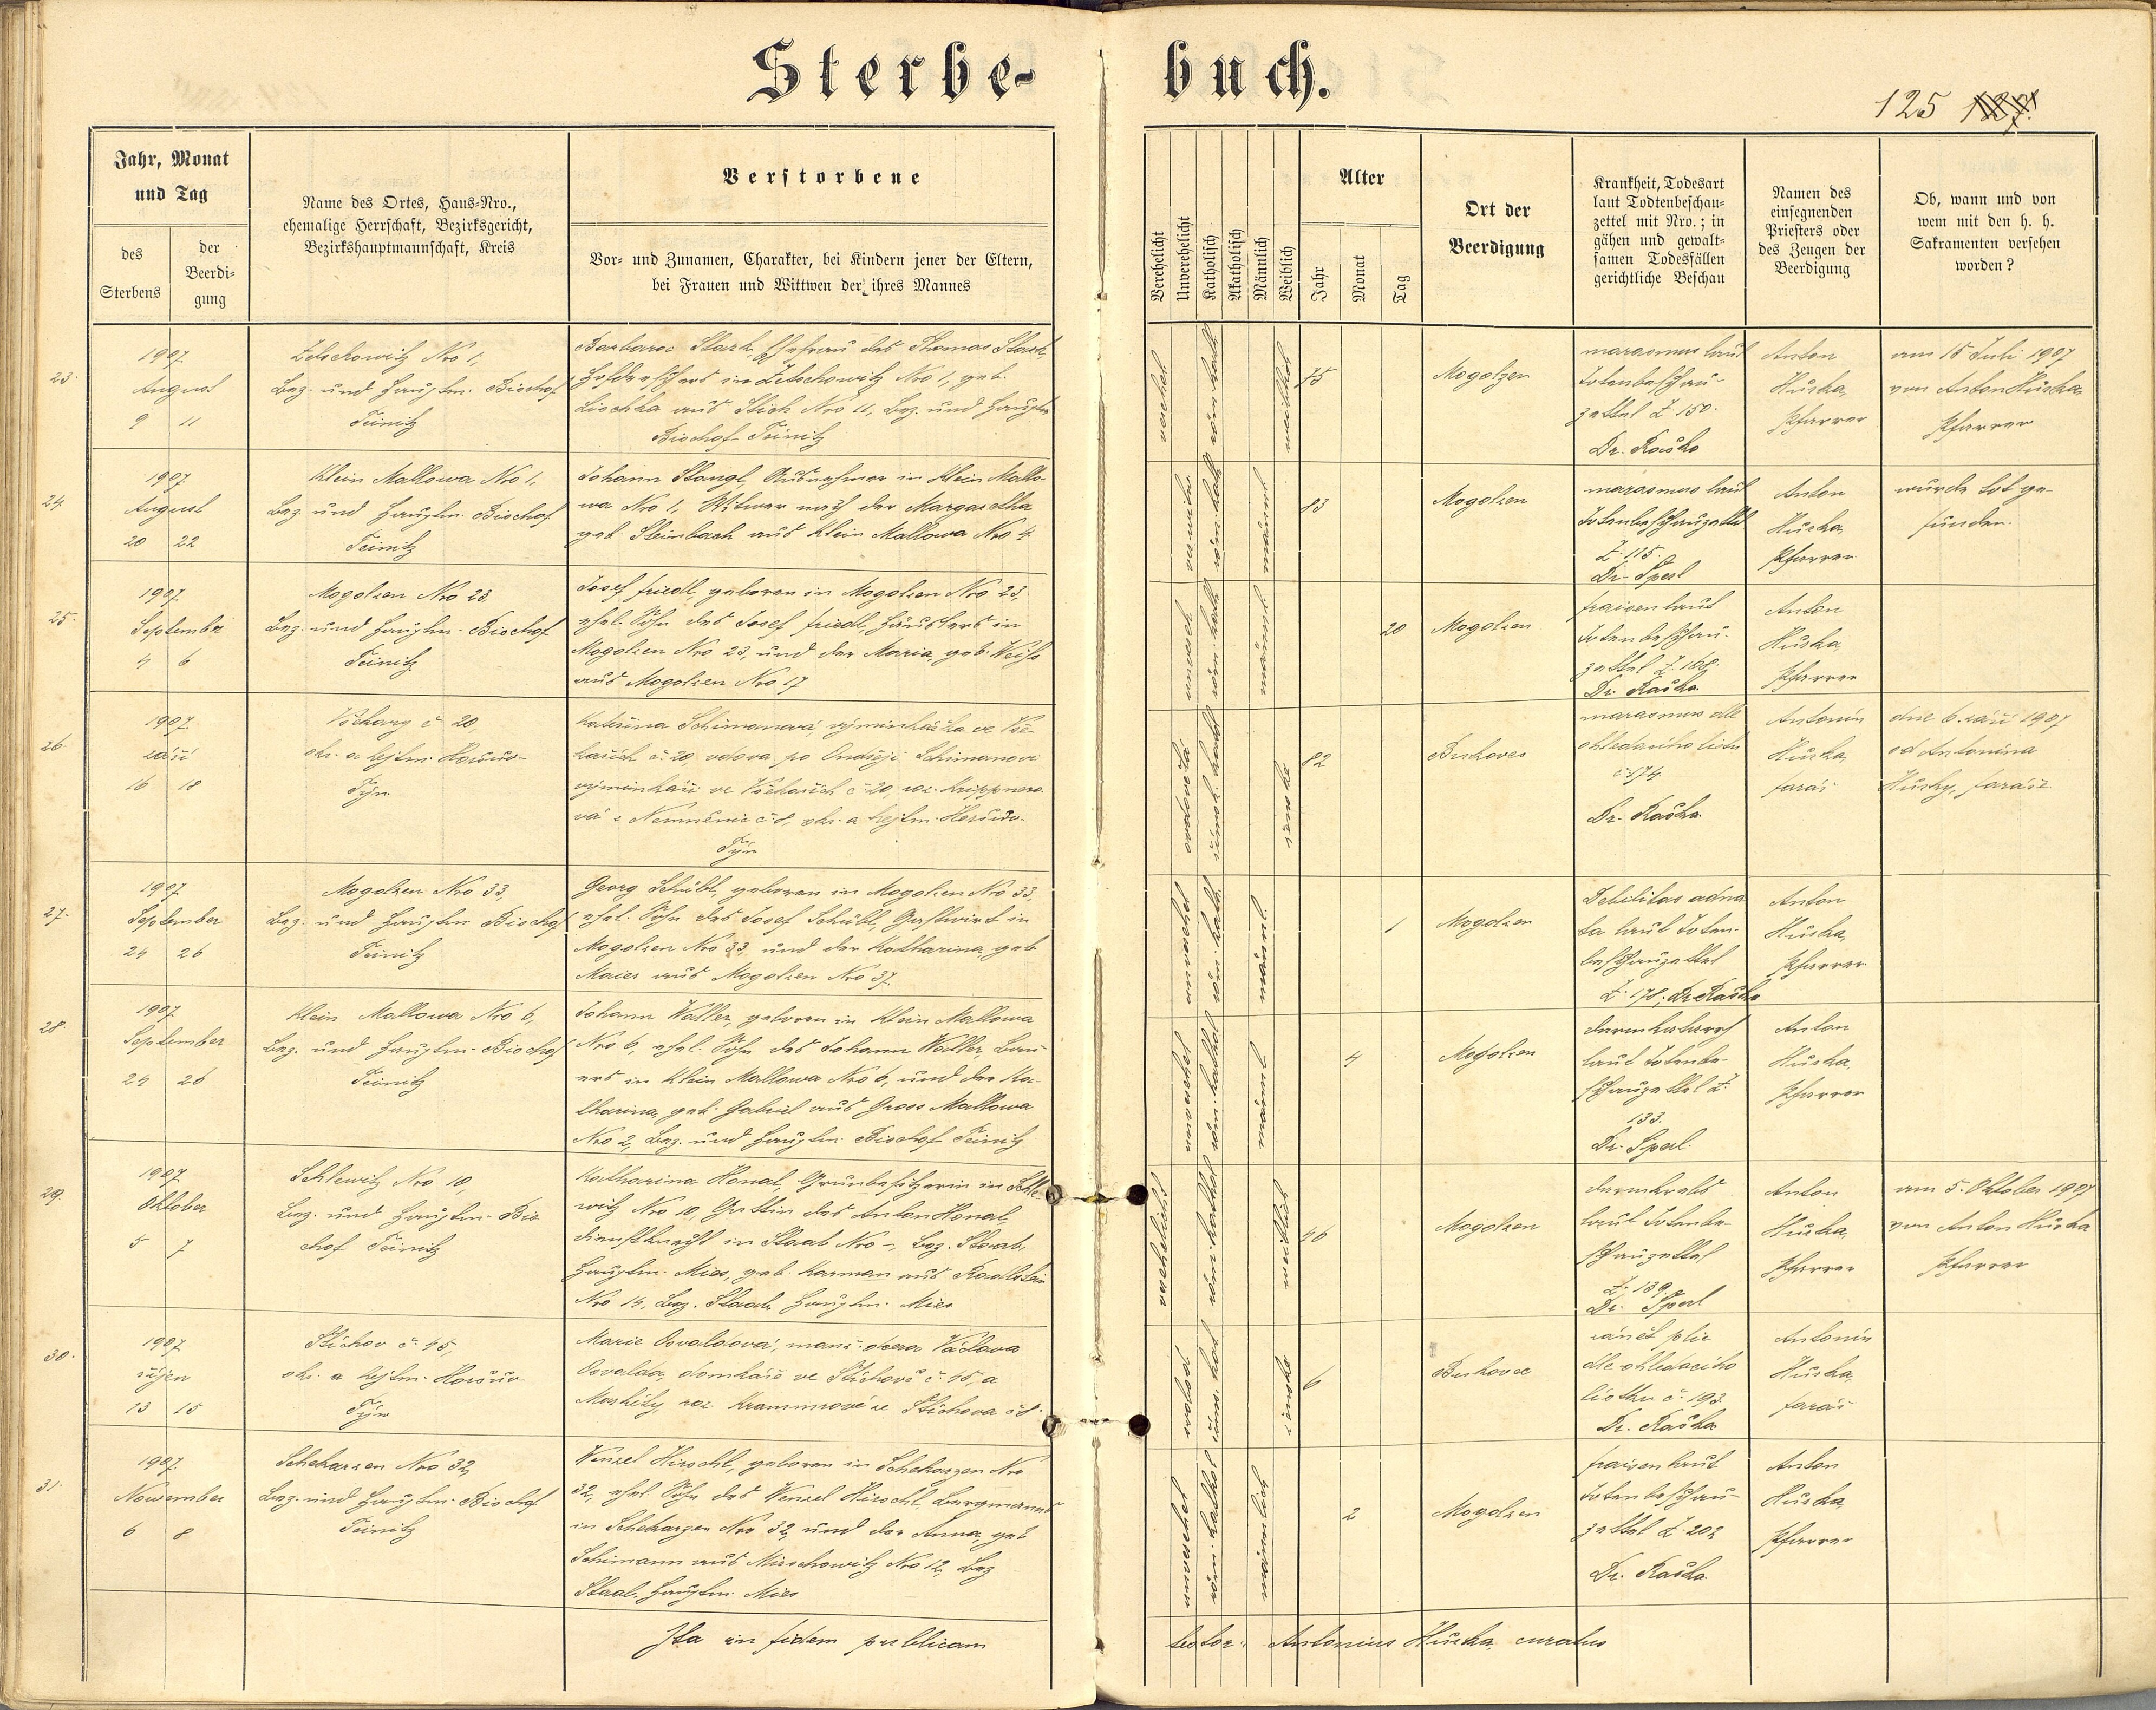 Sterbe-
buch.
125 127.
Jahr, Monat
und Tag
des
Sterbens
der
Beerdi-
gung
Name des Ortes, Haus-Nro.,
ehemalige Herrschaft, Bezirksgericht,
Bezirkshauptmannschaft, Kreis
Verstorbene
Vor- und Zunamen, Charakter, bei Kindern jener der Eltern,
bei Frauen und Wittwen der ihres Mannes
Verehelicht
Unverehelicht
Katholisch
Akatholisch
Männlich
Weiblich
Alter
Jahr
Monat
Tag
Ort der
Beerdigung
Krankheit, Todesart
laut Todtenbeschau-
zettel mit Nro.; in
gähen und gewalt-
samen Todesfällen
gerichtliche Beschau
Namen des
einsegnenden
Priesters oder
des Zeugen der
Beerdigung
Ob, wann und von
wem mit den h. h.
Sakramenten versehen
worden?
23.
1907
August
9 11
Zetschowitz Nro 1,
Bez. und Hauptm. Bischof
Teinitz
Barbara Stark, Ehefrau des Thomas Stark,
in Zetschowitz Nro 1, geb.
Lischka aus Stich Nro 11, Bez. und Hauptm.
Bischof Teinitz
verehel.
röm. kath.
weiblich
75
Mogolzen
marasmus laut
Totenbeschau-
zettel Z. 150.
Dr. Raška
Anton
Huska,
Pfarrer
am 15 Juli 1907
von Anton Huska
Pfarrer
24.
1907
August
20 22
Klein Mallowa Nro 1,
Bez. und Hauptm. Bischof
Teinitz
Johann Stangl, Ausnehmer in Klein Mallo-
wa Nro 1, Witwer nach der Margaretha
geb. Steinbach aus Klein Mallowa Nro 4
verwitw.
röm. kath.
männl.
83
Mogolzen
marasmus laut
Totenbeschauzettel
Z. 115.
Dr. Sperl
Anton
Huska,
Pfarrer
wurde tot ge-
funden.
25.
1907
September
4 6
Mogolzen Nro 23
Bez. und Hauptm. Bischof
Teinitz
Josef Friedl, geboren in Mogolzen Nro 23,
ehel. Sohn des Josef Friedl, Häuslers in
Mogolzen Nro 23, und der Maria, geb. Weiss
aus Mogolzen Nro 17
unvereh.
röm. kath.
männl.
20
Mogolzen
fraisen laut
Totenbeschau-
zettel Z. 168.
Dr. Raška
Anton
Huska,
Pfarrer
26.
1907
září
16 18
Všekary č. 20,
okr. a hejtm. Horšův-
Týn
Kateřina Schimanová, výminkářka ve Vše-
karích č. 20, vdova po Ondřeji Schimanovi
výminkáři ve Všekarích č. 20, roz. Krippnero-
vá z Němněnic č. 8, okr. a hejtm. Horšův-
Týn
ovdovělá
římsk. kath.
ženské
82
Bukovec
marasmus dle
ohledacího listu
č. 174
Dr. Raška
Antonín
Huska,
farář
dne 6. září 1907
od Antonína
Husky, faráře
27.
1907
September
24 26
Mogolzen Nro 33,
Bez. und Hauptm. Bischof
Teinitz
Georg Schübl, geboren in Mogolzen Nro 33,
ehel. Sohn des Josef Schübl, Gastwirt in
Mogolzen Nro 33, und der Katharina, geb.
Maier aus Mogolzen Nro 37.
unverehel.
röm. kath.
männl.
1
Mogolzen
Debilitas adna
ta laut Toten-
beschauzettel
Z. 178. Dr Raška
Anton
Huska,
Pfarrer
28.
1907
September
24 26
Klein Mallowa Nro 6,
Bez. und Hauptm. Bischof
Teinitz
Johann Waller, geboren in Klein Mallowa
Nro 6, ehel. Sohn des Johann Waller, Bau-
ers in Klein Mallowa Nro 6, und der Ka-
tharina, geb. Gabriel aus Gross Mallowa
Nro 2, Bez. und Hauptm. Bischof Teinitz
unverehel.
röm. kathol.
männl.
4
Mogolzen
darmkatarrh
laut Totenbe-
schauzettel Z.
133.
Dr. Sperl
Anton
Huska,
Pfarrer
29.
1907
Oktober
5 7
Schlewitz Nro 10,
Bez. und Hauptm. Bis-
chof Teinitz
Katharina Honal, Grundbesitzerin in Schle-
witz Nro 10, Gattin des Anton Honal,
Dienstknecht in Staab Nro –, Bez. Staab,
Hauptm. Mies, geb. Karman aus
Nro 14, Bez. Staab, Hauptm. Mies
verehelicht
röm. kathol.
weiblich
46
Mogolzen
darmkrebs
laut Totenbe-
schauzettel
Z. 139
Dr. Sperl
Anton
Huska,
Pfarrer
am 5. Oktober 1907
von Anton Huska
Pfarrer
30.
1907
říjen
13 15
Štichov č. 45,
okr. a hejtm. Horšův-
Týn
Marie Osvaldová, manž. dcera Václava
Osvalda, domkáře ve Štichově č. 45, a
Markéty, roz. Krammrové ze Štichova č. 8
svobod.
říms. kat.
ženské
6
Bukovec
zánět plic
dle ohledacího
lístku č. 193.
Dr. Raška
Antonín
Huska,
farář
31.
1907
November
6 8
Schekarzen Nro 32,
Bez. und Hauptm. Bischof
Teinitz
Wenzel Hirschl, geboren in Schekarzen Nro
32, ehel. Sohn des Wenzel Hirschl, Bergmanns
in Schekarzen Nro 32, und der Anna, geb.
Schimann aus Mirschowitz Nro 12, Bez.
Staab, Hauptm. Mies
unverehel.
röm. kathol.
männlich
2
Mogolzen
fraisen laut
Totenbeschau-
zettel Z. 202
Dr. Raška
Anton
Huska,
Pfarrer
Ita in fidem publicam
testor: Antonius Huska, curatus